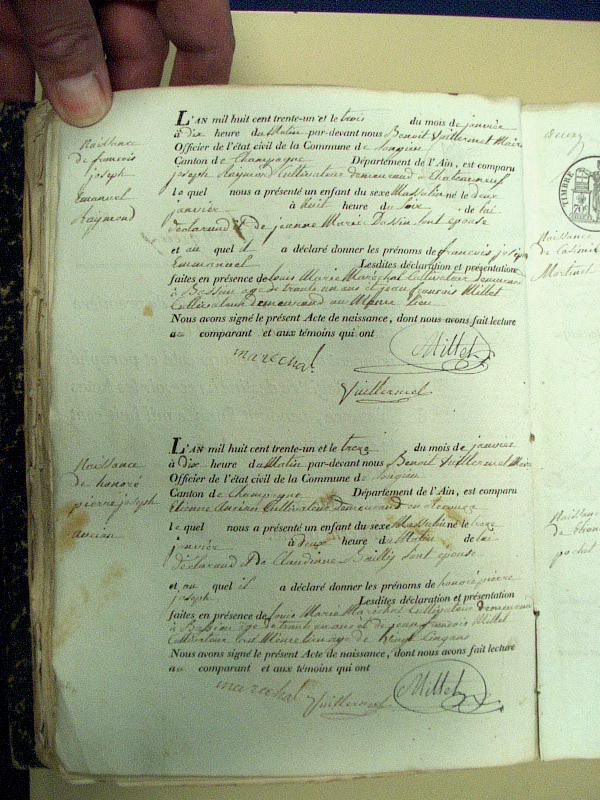 Naissance
de francois
joseph
Emanuel
Raymond
L'AN mil huit cent trente-un et le trois du mois de janvier
à Dix heure du Matin par-devant nous Benoit Vuillermet Maire
Officier de l'état civil de la Commune de Songieu
Canton de Champagne Département de l'Ain, est comparu
joseph Raymond Cultivateur demeurand à
le quel nous a présenté un enfant du sexe Masculin né le deux
janvier à huit heure du Soir de lui
déclarand et de jeanne Marie Dassin Sont épouse
et au quel il a déclaré donner les prénoms de francois joseph
Emmanuel Lesdites déclaration et présentation
faites en présence de Louis Marie Maréchal Cultivateur demeurand
à Bassieu age de trante un ans et jean francois Millet
Cultivateur demeurand au Meme Lieu
Nous avons signé le présent Acte de naissance, dont nous avons fait lecture
au comparant et aux témoins qui ont
marechal
Millet
Vuillermet
Naissance
de honoré
pierre joseph
ancian
L'AN mil huit cent trente-un et le treze du mois de janvier
à Dix heure du Matin par-devant nous Benoit Vuillermet Maire
Officier de l'état civil de la Commune de Songieu
Canton de Champagne Département de l'Ain, est comparu
Etienne Ancian Cultivateur demeurand
le quel nous a présenté un enfant du sexe Masculin né le treze
janvier à deux heure du Matin de lui
déclarand & de Claudinne Bailly Sont épouse
et au quel il a déclaré donner les prénoms de honoré pierre
joseph Lesdites déclaration et présentation
faites en présence de Louis Marie Maréchal Cultivateur demeurand
à Bassieu age de trante un ans et de jean francois Millet
Cultivateur au Meme lieu age de
Nous avons signé le présent Acte de naissance, dont nous avons fait lecture
au comparant et aux témoins qui ont
marechal
Vuillermet
Millet
TIMBRE
Naissance
de Casimir
Martinet
Naissance
pochet